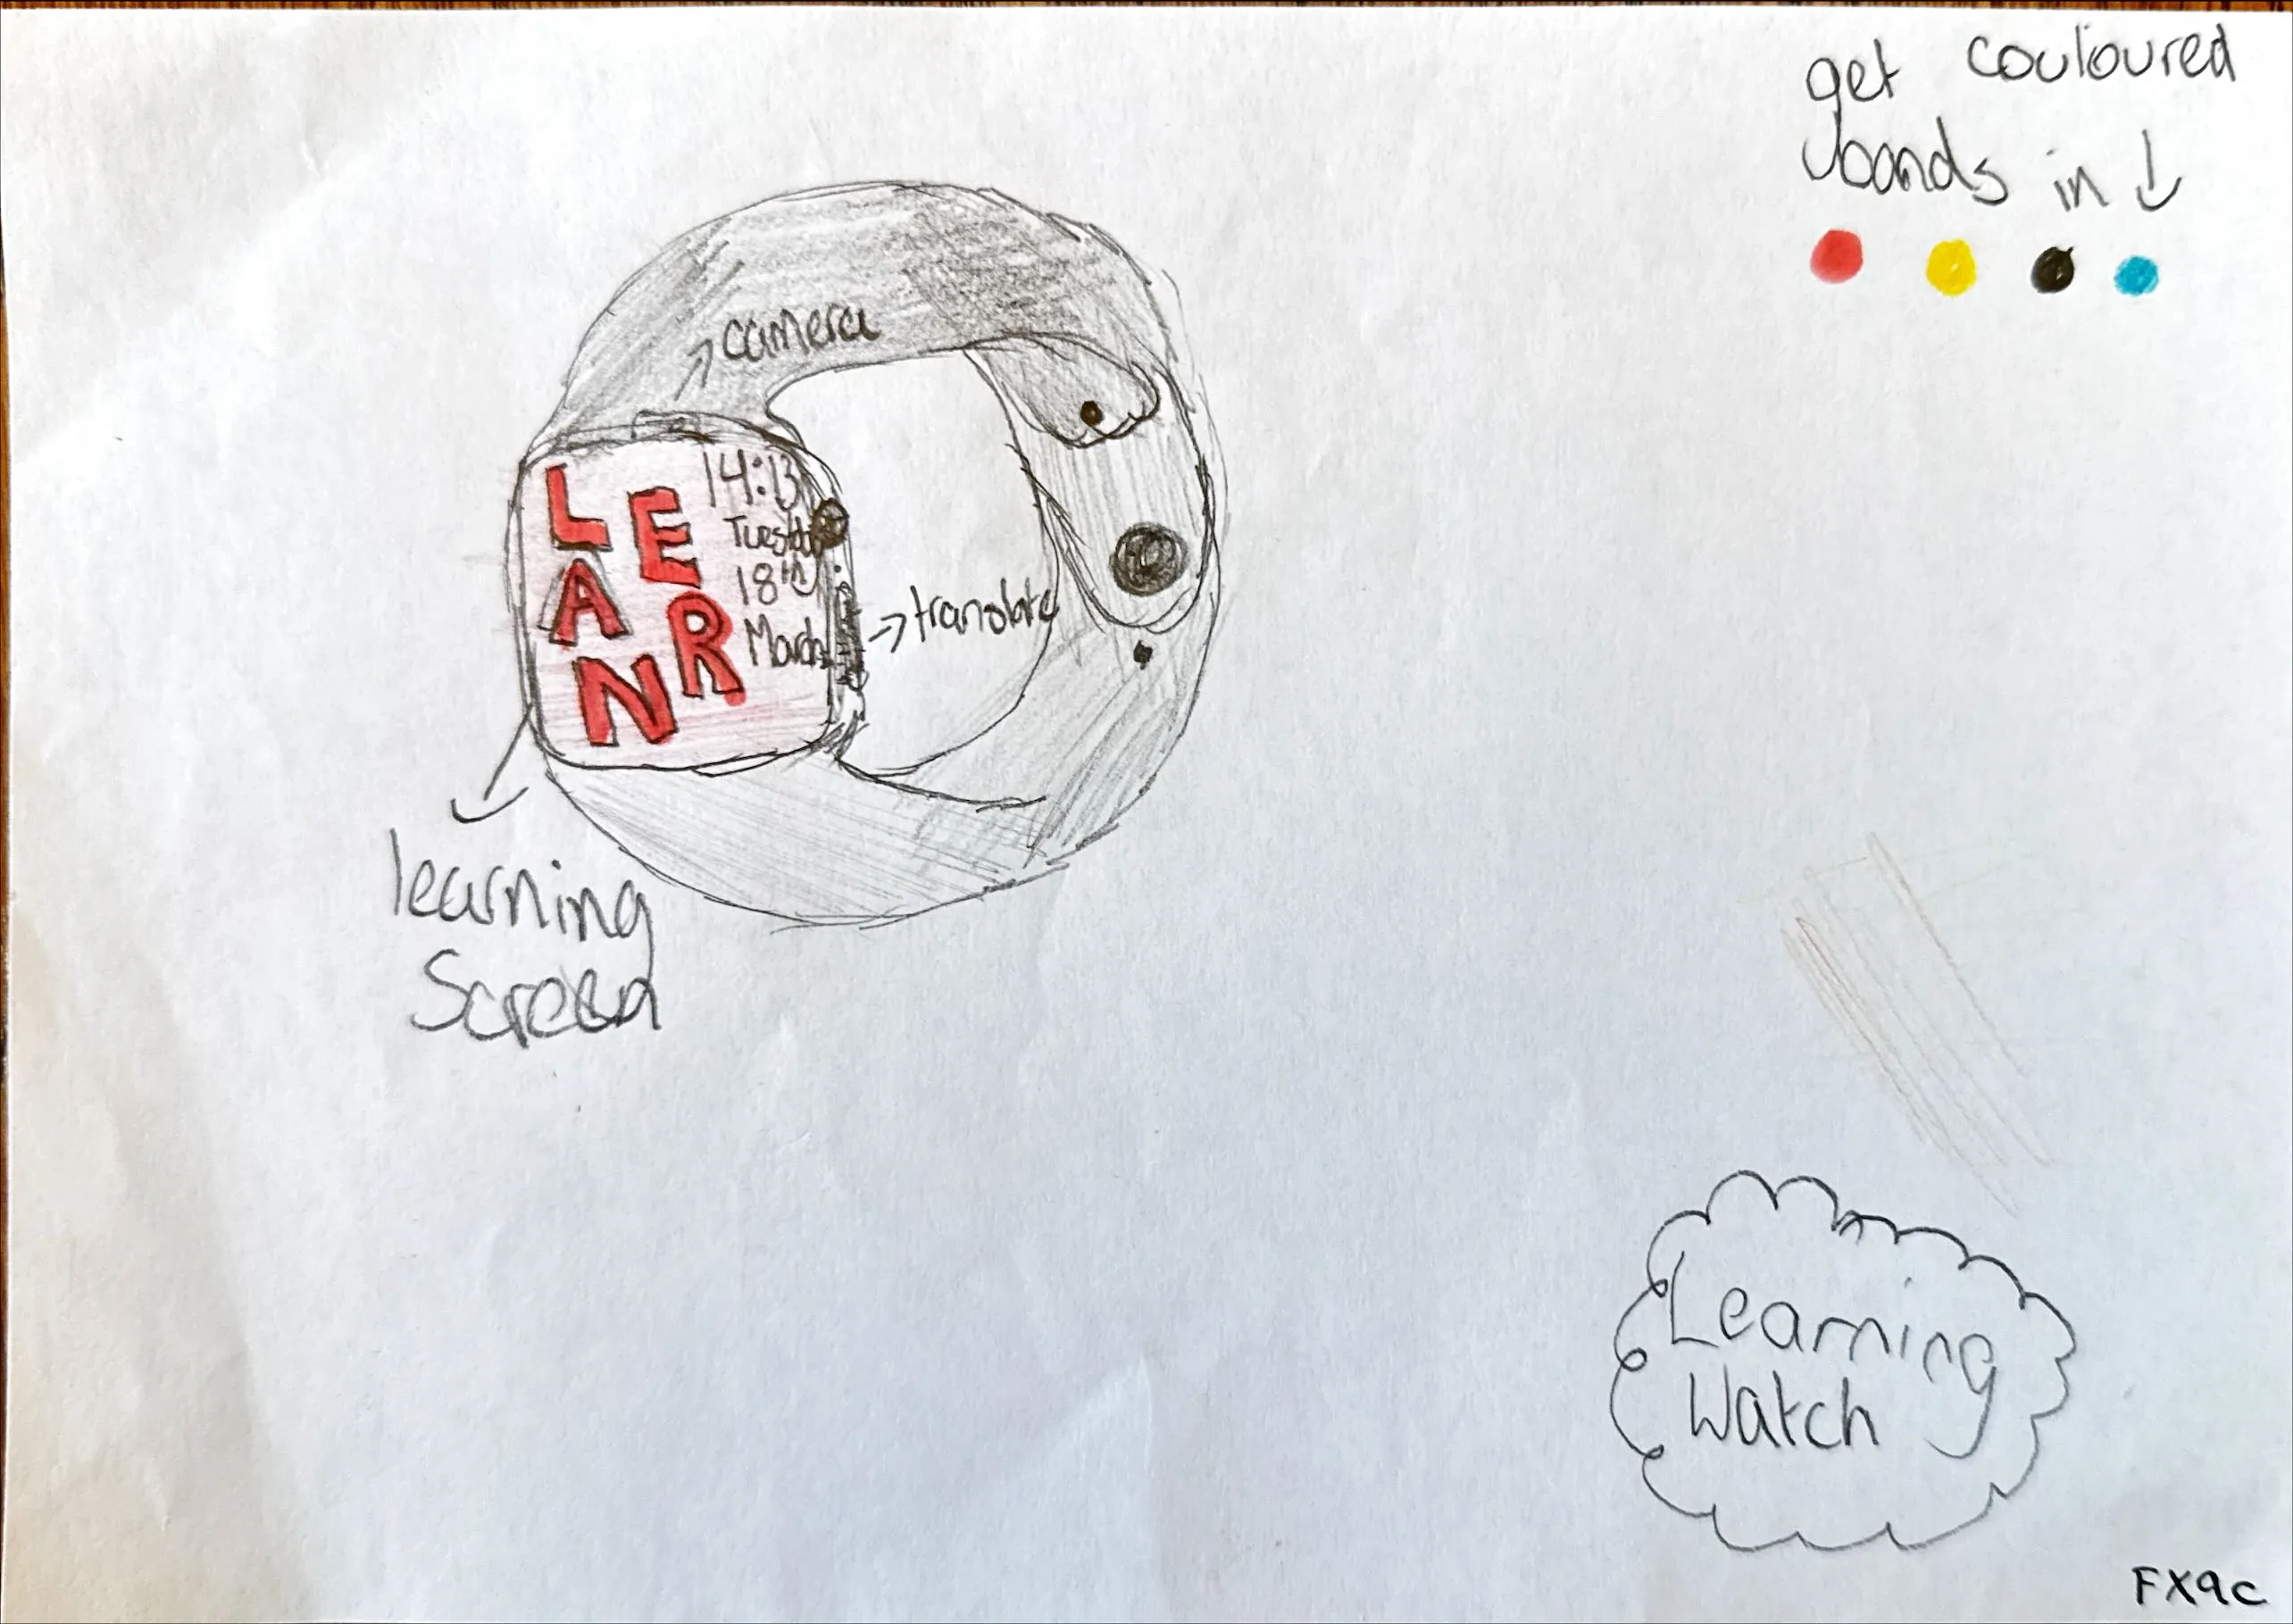 get couloured
bands in
camera
L E
A R
N
14:13
Tuesday
18th
March
translate
learning
Screen
Learning
Watch
FX9C